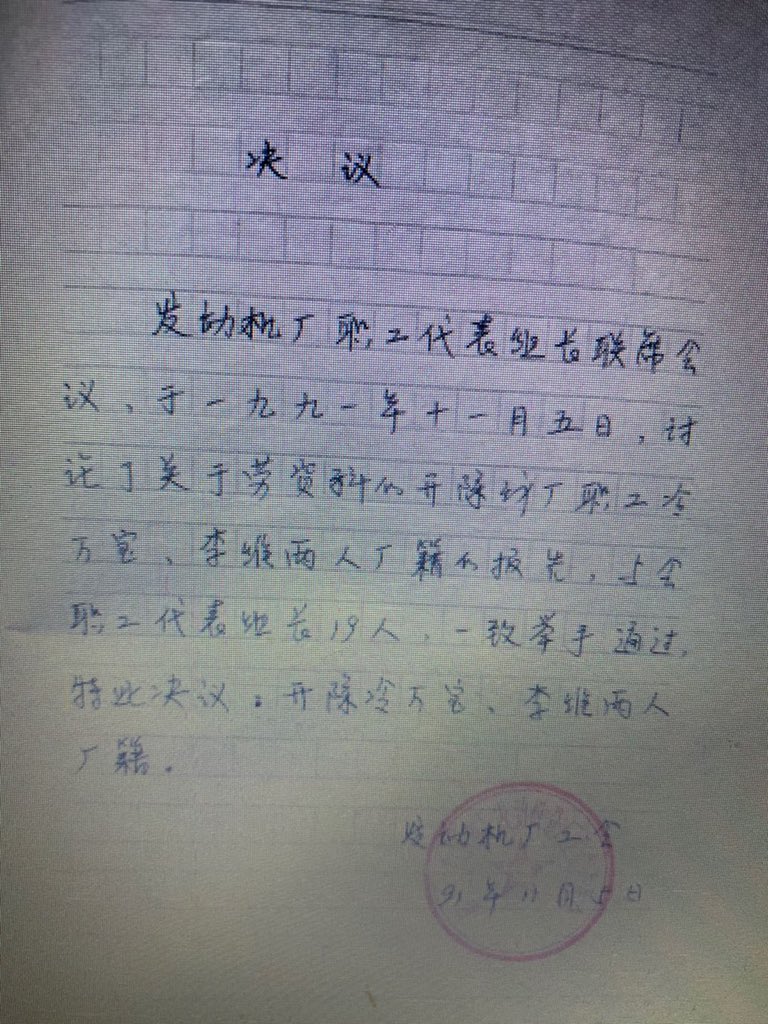 决 议
发动机厂职工代表组长联席会
议、于一九九一年十一月五日，讨
论了关于劳资科的开除我厂职工冷
万宝、李维两人厂籍的报告，与会
职工代表组长19人、一致举手通过，
特此决议。开除冷万宝、李维两人
厂籍。
发动机厂工会
91年11月5日